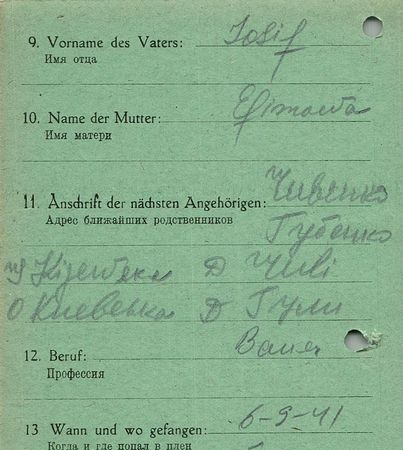 9. Vorname des Vaters: Iosif
Имя отца
10. Name der Mutter:
Имя матери
11. Anschrift der nächsten Angehörigen: Чивенко
Адрес ближайших родственников Губенко
Д
О Киевська Д Гули
12. Beruf: Bauer
Профессия
13 Wann und wo gefangen: 6-9-41
Когда и где попал в плен